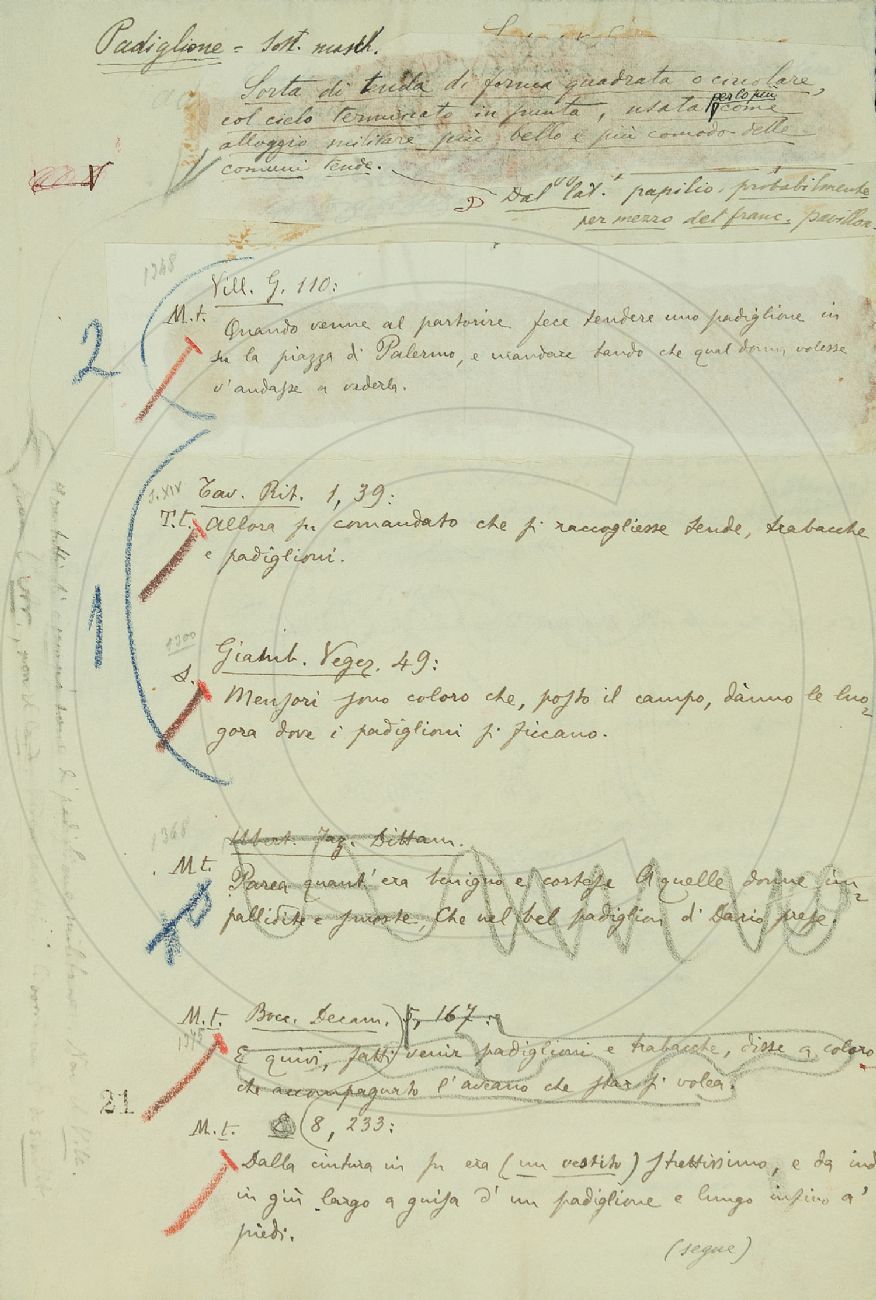 Padiglione = Sost. masch.
Sorta di tenda di forma quadrata o circolare,
col cielo terminato in punta, usata per lo più come
alloggio militare più bello e più comodo delle
comuni tende.
V
Dal lat. papilio, probabilmente
per mezzo del franc. pavillon.
1348
Vill. G. 110:
M.t.
Quando venne al partorire fece tendere uno padiglione in
su la piazza di Palermo, e mandare bando che qual donna volesse
v'andasse a vederla.
2
s. XIV
Tav. Rit. 1, 39:
T.t. Allora fu comandato che si raccogliesse tende, trabacche
e padiglioni.
1
1300
Giamb. Vegez. 49:
S.
Mensori sono coloro che, posto il campo, dànno le luo-
gora dove i padiglioni si ficcano.
1368
Ubert. Faz. Dittam.
M t.
Parea quant'era benigno e cortese A quelle donne im-
pallidite e smorte, Che nel bel padiglion di Dario prese.
M.t. Bocc. Decam. 5, 167:
E quivi, fatti venir padiglioni e trabacche, disse a coloro
che accompagnato l'aveano che star si volea.
21
M.t. 8, 233:
Dalla cintura in su era (un vestito) strettissimo, e da indi
in giù largo a guisa d'un padiglione e lungo infino a'
piedi.
(segue)